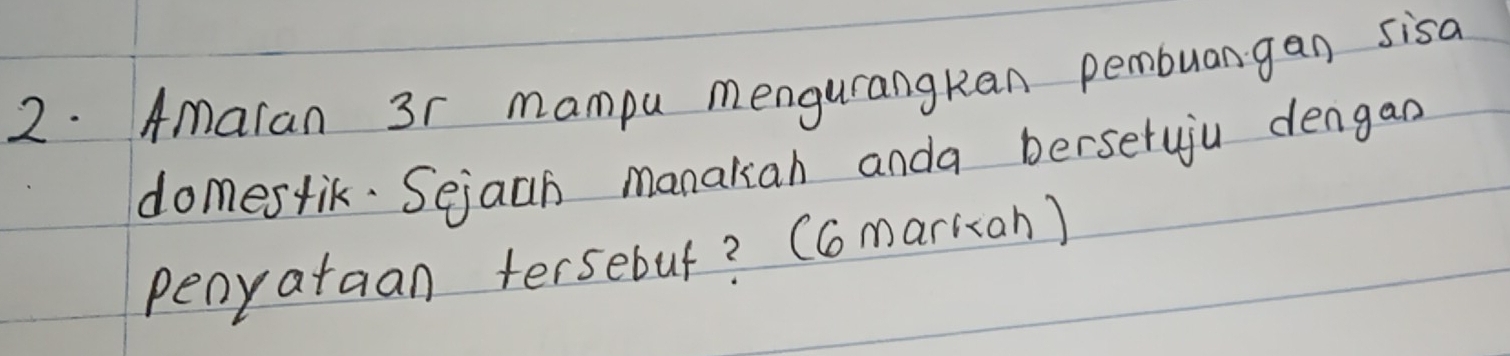 2. Amalan 3r mampu mengurangkan pembuangan sisa
domestik. Sejauh manakah anda bersetuju dengan
penyataan tersebut? (6 markah)